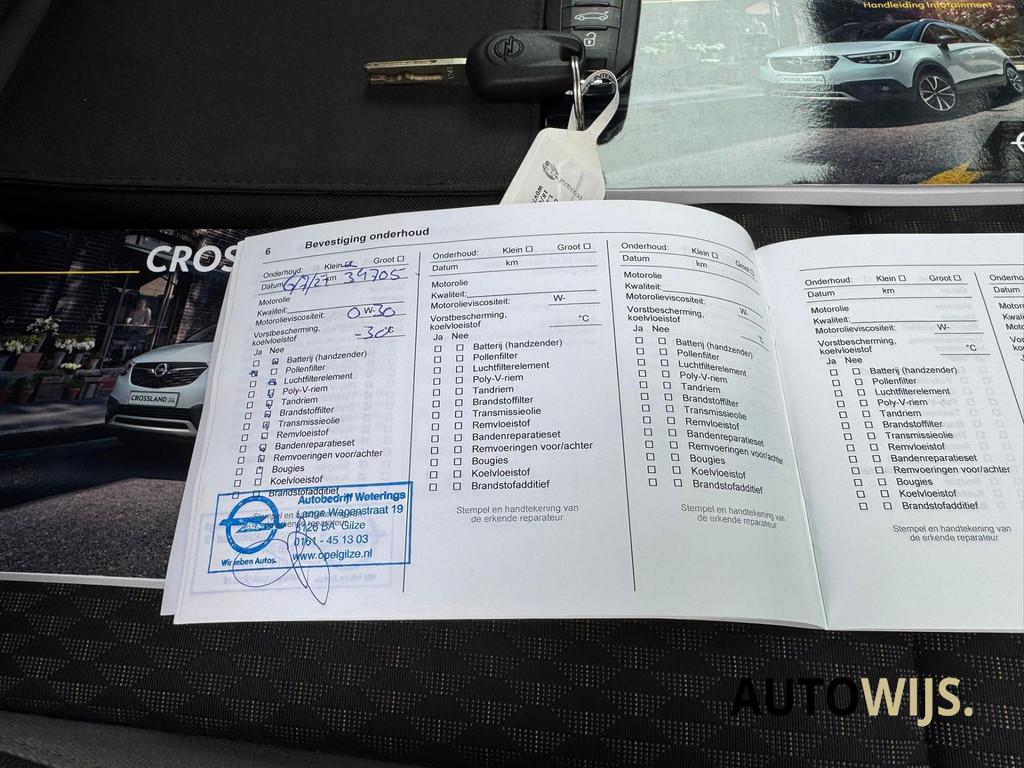 Handleiding Infotainment
CROSSLAND
CROS
CROSSLAND
6 Bevestiging onderhoud
Onderhoud: Klein Groot
Datum km 39705
Motorolie
Kwaliteit:
Motorolieviscositeit: 0 W- 30
Vorstbescherming,
koelvloeistof -30 °C
Ja Nee
Batterij (handzender)
Pollenfilter
Luchtfilterelement
Poly-V-riem
Tandriem
Brandstoffilter
Transmissieolie
Remvloeistof
Bandenreparatieset
Remvoeringen voor/achter
Bougies
Koelvloeistof
Brandstofadditief
Stempel en handtekening van
de erkende reparateur
Autobedrijf Weterings
Lange Wagenstraat 19
5126 DA Gilze
0161 - 45 13 03
www.opelgilze.nl
Wir leben Autos.
Onderhoud: Klein Groot
Datum km
Motorolie
Kwaliteit:
Motorolieviscositeit: W-
Vorstbescherming,
koelvloeistof °C
Ja Nee
Batterij (handzender)
Pollenfilter
Luchtfilterelement
Poly-V-riem
Tandriem
Brandstoffilter
Transmissieolie
Remvloeistof
Bandenreparatieset
Remvoeringen voor/achter
Bougies
Koelvloeistof
Brandstofadditief
Stempel en handtekening van
de erkende reparateur
Onderhoud: Klein Groot
Datum km
Motorolie
Kwaliteit:
Motorolieviscositeit: W-
Vorstbescherming,
koelvloeistof °C
Ja Nee
Batterij (handzender)
Pollenfilter
Luchtfilterelement
Poly-V-riem
Tandriem
Brandstoffilter
Transmissieolie
Remvloeistof
Bandenreparatieset
Remvoeringen voor/achter
Bougies
Koelvloeistof
Brandstofadditief
Stempel en handtekening van
de erkende reparateur
Onderhoud: Klein Groot
Datum km
Motorolie
Kwaliteit:
Motorolieviscositeit: W-
Vorstbescherming,
koelvloeistof °C
Ja Nee
Batterij (handzender)
Pollenfilter
Luchtfilterelement
Poly-V-riem
Tandriem
Brandstoffilter
Transmissieolie
Remvloeistof
Bandenreparatieset
Remvoeringen voor/achter
Bougies
Koelvloeistof
Brandstofadditief
Stempel en handtekening van
de erkende reparateur
AUTOWIJS.